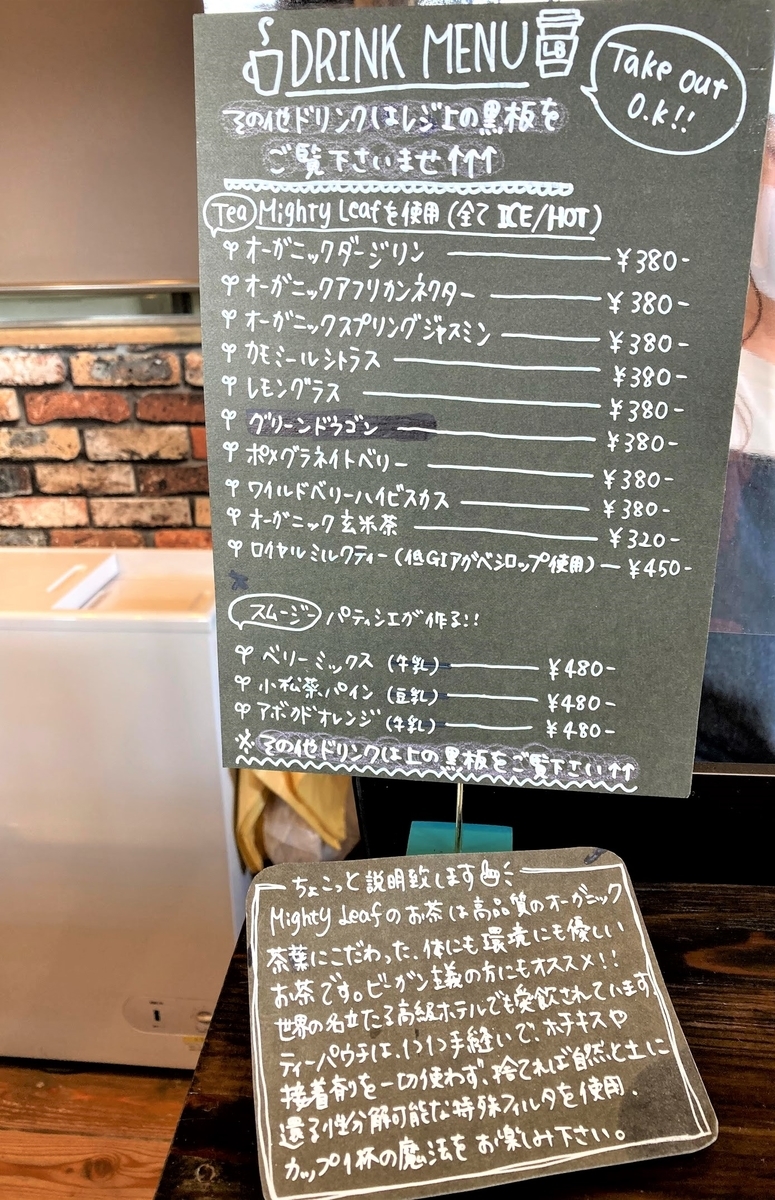 DRINK MENU
LB
Take out
O.k!!
その他ドリンクはレジ上の黒板を
ご覧下さいませ↑↑↑
Tea Mighty Leafを使用(全てICE/HOT)
オーガニックダージリン ¥380-
オーガニックアフリカンネクター ¥380-
オーガニックスプリングジャスミン ¥380-
カモミールシトラス ¥380-
レモングラス ¥380-
グリーンドラゴン ¥380-
ポメグラネイトベリー ¥380-
ワイルドベリーハイビスカス ¥380-
オーガニック玄米茶 ¥320-
ロイヤルミルクティー(低GIアガベシロップ使用) ¥450-
スムージー パティシエが作る!!
ベリーミックス(牛乳) ¥480-
小松菜パイン(豆乳) ¥480-
アボカドオレンジ(牛乳) ¥480-
※その他ドリンクは上の黒板をご覧下さい↑↑
ちょこっと説明致します
Mighty Leafのお茶は高品質のオーガニック
茶葉にこだわった、体にも環境にも優しい
お茶です。ビーガン主義の方にもオススメ!!
世界の名立たる高級ホテルでも愛飲されています。
ティーパウチは、1つ1つ手縫いで、ホチキスや
接着剤を一切使わず、捨てれば自然と土に
還る生分解可能な特殊フィルタを使用.
カップ1杯の魔法をお楽しみ下さい。